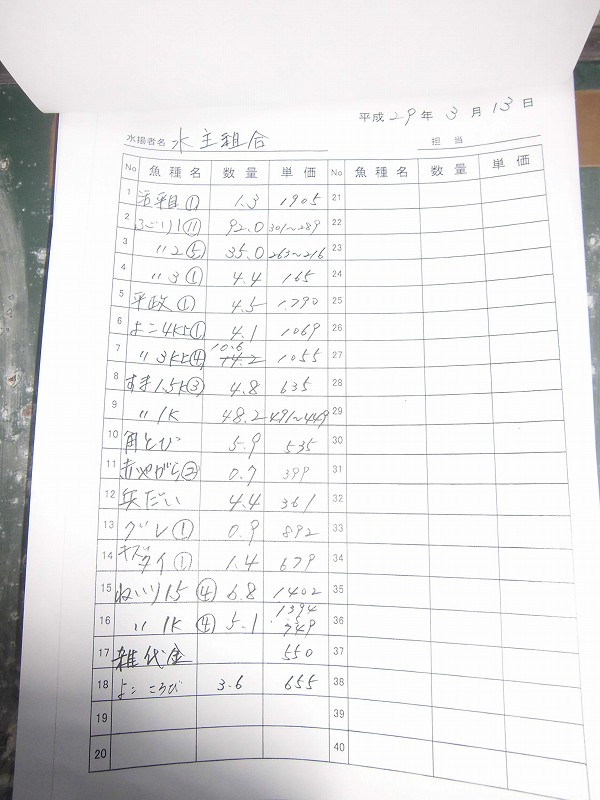 平成 29 年 3 月 13 日
水揚者名 水主組合 担当
No 魚種名 数量 単価 No 魚種名 数量 単価
1 活平目① 1.3 1905 21
2 92.0 301~289 22
3 〃2⑤ 35.0 263~216 23
4 〃3① 4.4 165 24
5 平政① 4.5 1790 25
6 よこ4kg① 4.1 1069 26
7 〃3kg④ 10.6 14.2 1055 27
8 すま1.5K③ 4.8 635 28
9 〃1K 48.2 491~449 29
10 角とび 5.9 535 30
11 赤やがら② 0.7 399 31
12 矢だい 4.4 361 32
13 グレ① 0.9 892 33
14 キズタイ① 1.4 679 34
15 ねいり15④ 6.8 1402 35
16 〃1K④ 5.1 1394 749 36
17 雑代金 550 37
18 よこころび 3.6 655 38
19 39
20 40